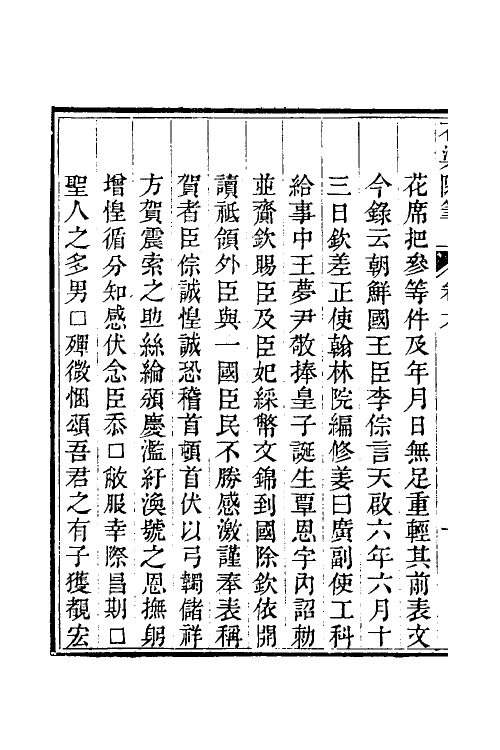 花席把參等件及年月日無足重輕其前表文
今錄云朝鮮國王臣李倧言天啟六年六月十
三日欽差正使翰林院編修姜曰廣副使工科
給事中王夢尹敬捧皇子誕生覃恩宇內詔勅
並齎欽賜臣及臣妃綵幣文錦到國除欽依開
讀祗領外臣與一國臣民不勝感激謹奉表稱
賀者臣倧誠惶誠恐稽首頓首伏以弓韣儲祥
方賀震索之助絲綸頒慶濫紆渙號之恩撫躬
增惶循分知感伏念臣忝口敞服幸際昌期口
聖人之多男口殫微悃頌吾君之有子獲覩宏